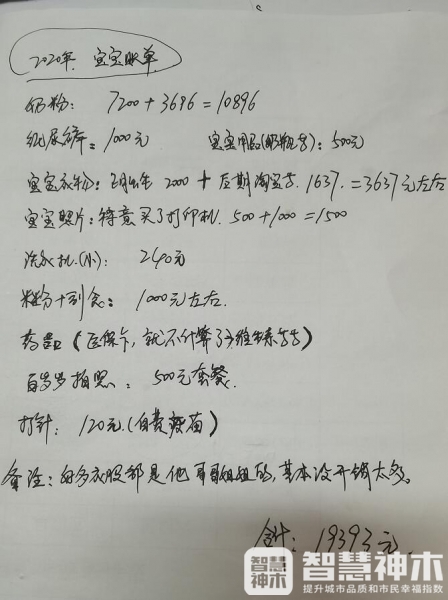 2020年 宝宝账单
奶粉: 7200+3696=10896
纸尿裤: 1000元 宝宝用品(奶瓶等): 500元
宝宝衣物: 2000 + 后期淘宝等. 1637.=3637元左右
宝宝照片: 特意买了打印机. 500+1000=1500
洗衣机(小): 240元
米粉+副食: 1000元左右.
药费 (医保卡, 就不计算了)
百岁拍照: 500元套餐.
打针: 120元(自费疫苗)
备注: 好多衣服都是他哥哥姐姐的, 基本没开销太多。
合计: 19393元.
智慧神木
智慧神木
提升城市品质和市民幸福指数